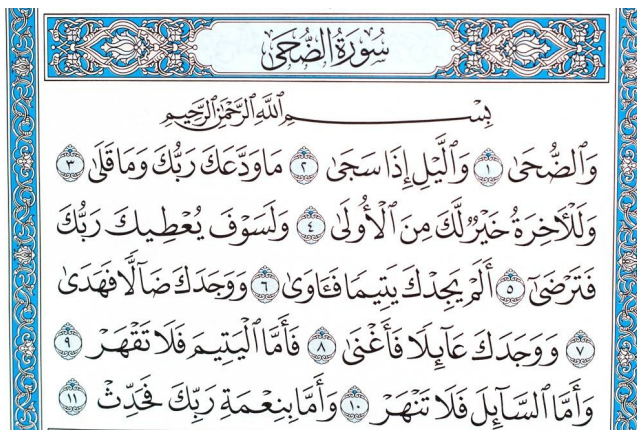 سُورَةُ الضُّحَىٰ
بِسْمِ ٱللَّهِ ٱلرَّحْمَٰنِ ٱلرَّحِيمِ
وَٱلضُّحَىٰ ١ وَٱلَّيْلِ إِذَا سَجَىٰ ٢ مَا وَدَّعَكَ رَبُّكَ وَمَا قَلَىٰ ٣
وَلَلْءَاخِرَةُ خَيْرٌ لَّكَ مِنَ ٱلْأُولَىٰ ٤ وَلَسَوْفَ يُعْطِيكَ رَبُّكَ
فَتَرْضَىٰٓ ٥ أَلَمْ يَجِدْكَ يَتِيمًا فَـَٔاوَىٰ ٦ وَوَجَدَكَ ضَآلًّا فَهَدَىٰ
٧ وَوَجَدَكَ عَآئِلًا فَأَغْنَىٰ ٨ فَأَمَّا ٱلْيَتِيمَ فَلَا تَقْهَرْ ٩
وَأَمَّا ٱلسَّآئِلَ فَلَا تَنْهَرْ ١٠ وَأَمَّا بِنِعْمَةِ رَبِّكَ فَحَدِّثْ ١١